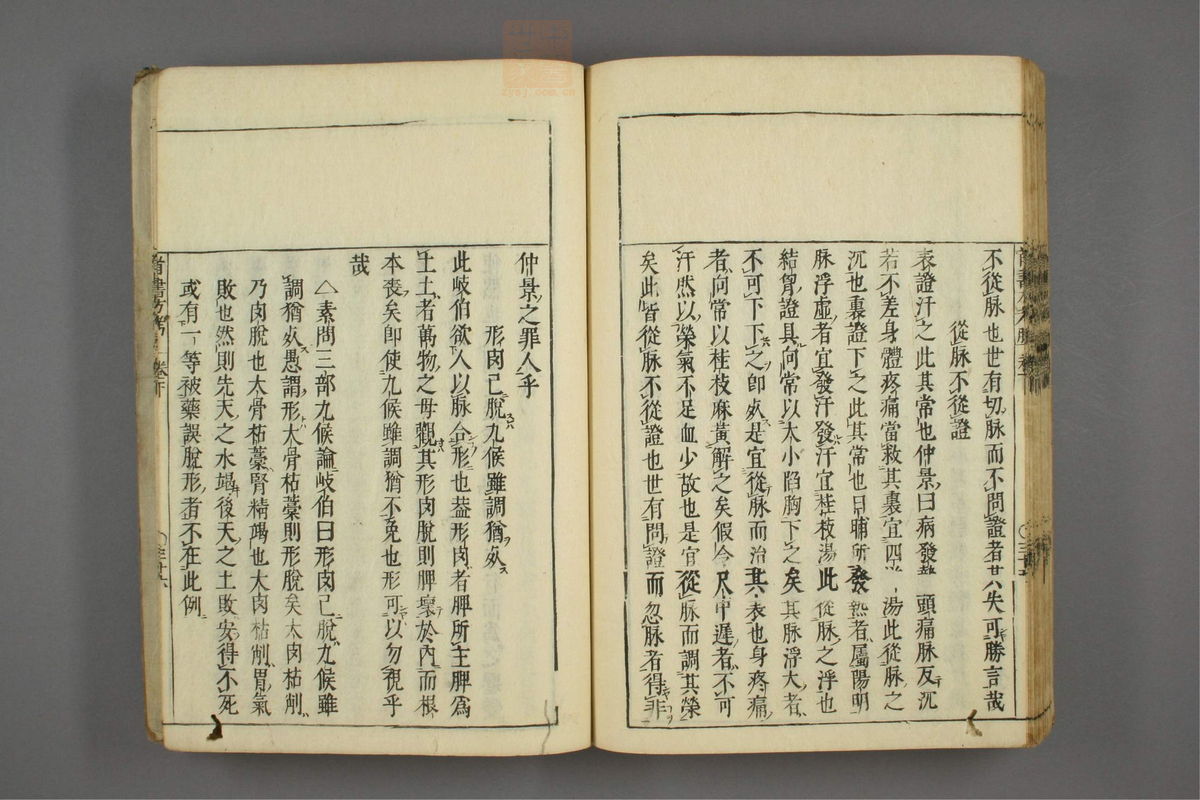 不從脉也世有切脉而不問證者其失可勝言哉
從脉不從證
表證汗之此其常也仲景曰病發熱頭痛脉反沉
若不差身體疼痛當救其裏宜四逆湯此從脉之
沉也裏證下之此其常也日晡所發熱者屬陽明
脉浮虛者宜發汗發汗宜桂枝湯此從脉之浮也
結胷證具向常以大小陷胸下之矣其脉浮大者
不可下下之即死是宜從脉而治其表也身疼痛
者向常以桂枝麻黃解之矣假令尺中遲者不可
汗然以榮氣不足血少故也是宜從脉而調其榮
矣此皆從脉不從證也世有問證而忽脉者得非
仲景之罪人乎
形肉已脫九候雖調猶死
此岐伯欲人以脉合形也葢形肉者脾所主脾為
土土者萬物之母觀其形肉脫則脾壞於內而根
本喪矣即使九候雖調猶不免也形可以勿視乎
哉
素問三部九候論岐伯曰形肉已脫九候雖
調猶死愚謂形大骨枯藁則形脫矣大肉枯削
乃肉脫也大骨枯藁腎精竭也大肉枯削胃氣
敗也然則先天之水竭後天之土敗安得不死
或有一等被藥誤脫形者不在此例